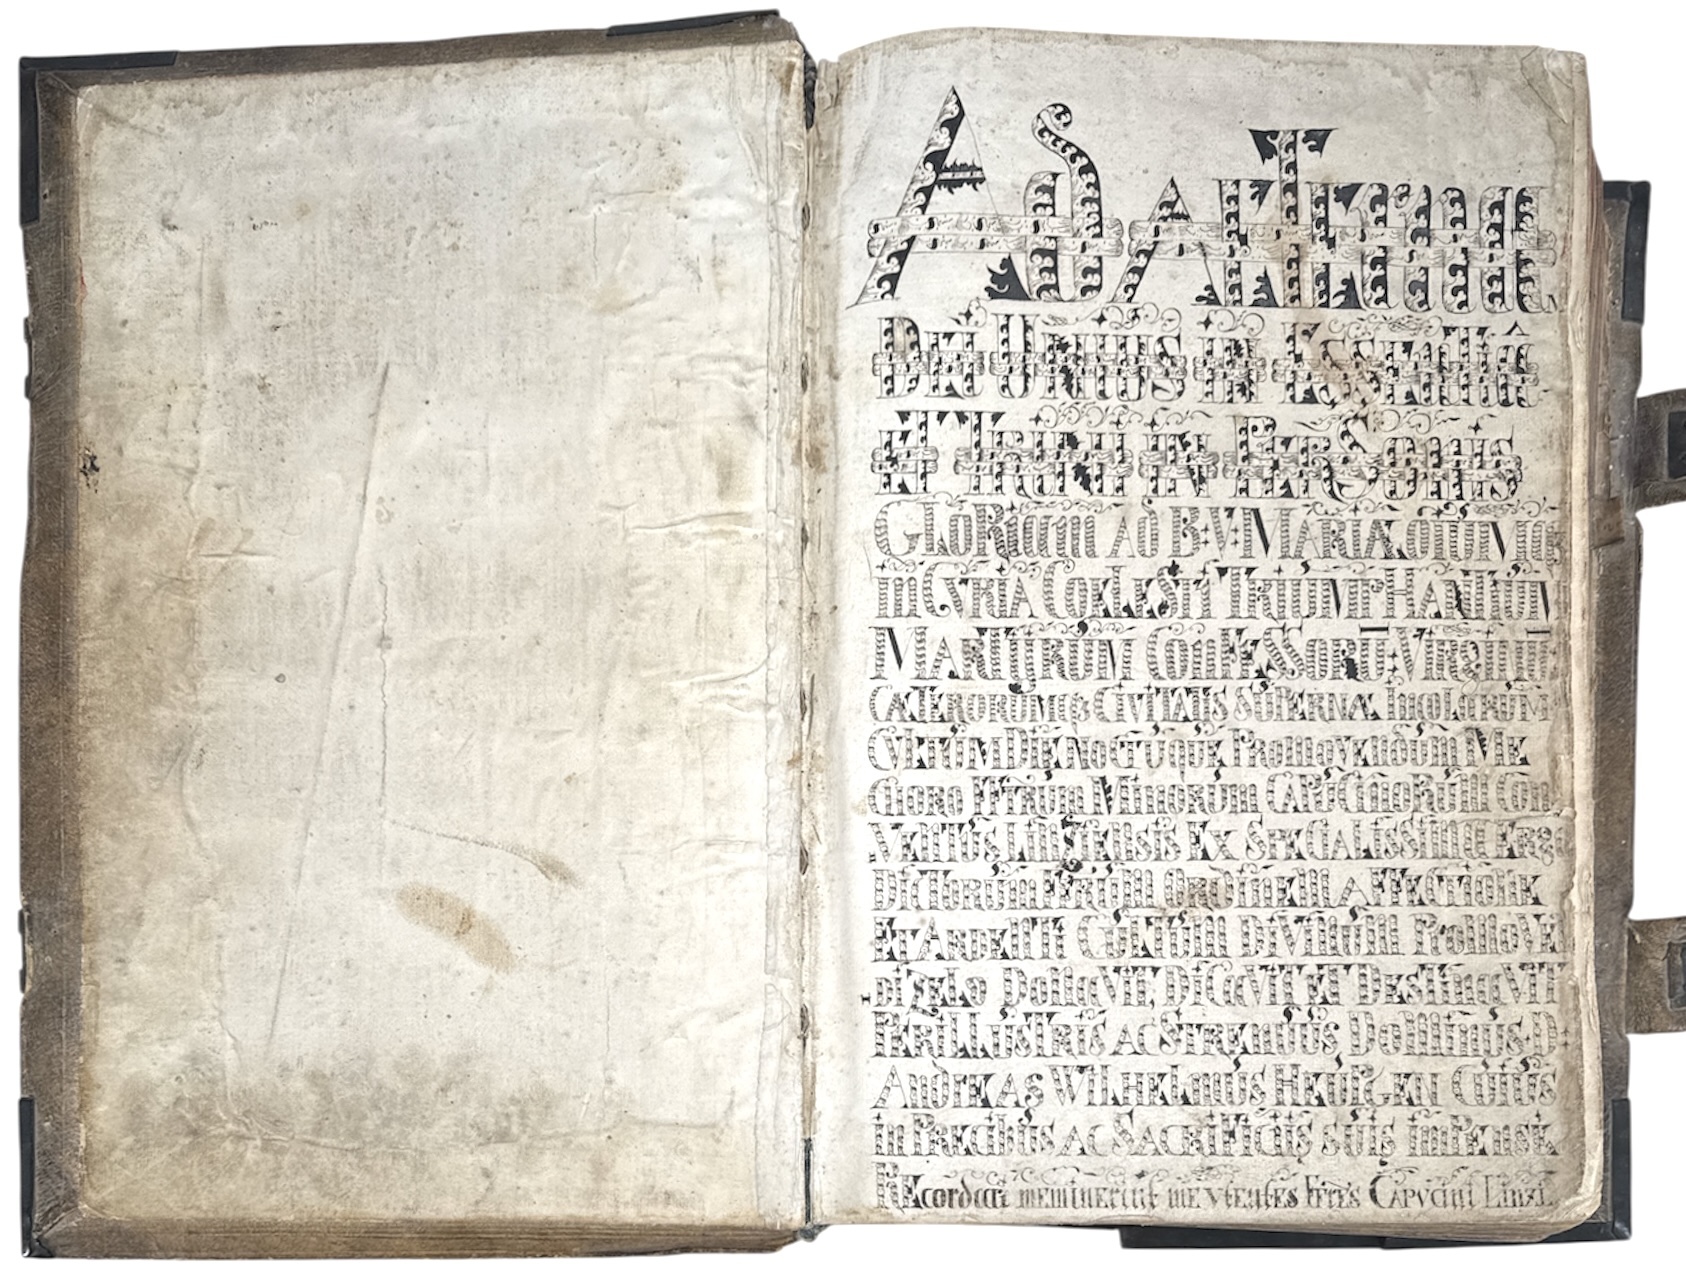 Ad Aeternā
Dei Unius in Essentiâ
et Trini in Personis
Gloriam ad B. V. Mariae omniumq
in Curia Coelesti Triumphantium
Martyrum Confessorū Virginū
Caeterorumq Civitatis Supernae Incolarum
Cultum Die Noctuque Promovendum Me
Choro Ff̃rum Minorum Capucinorum Con
ventus Linzensis ex Specialissima Erga
Dictorum Frum Ordinem Affectione
et Ardenti Cultum Divinum Promoven
di Zelo Donavit Dicavit et Destinavit
Perillustris ac Strenuus Dominus D
Andreas Wilhelmus Heufgen Cuius
in Precibus ac Sacrificijs suis impense
Recordari meminerint me utentes Frẽs Capucini Linzi